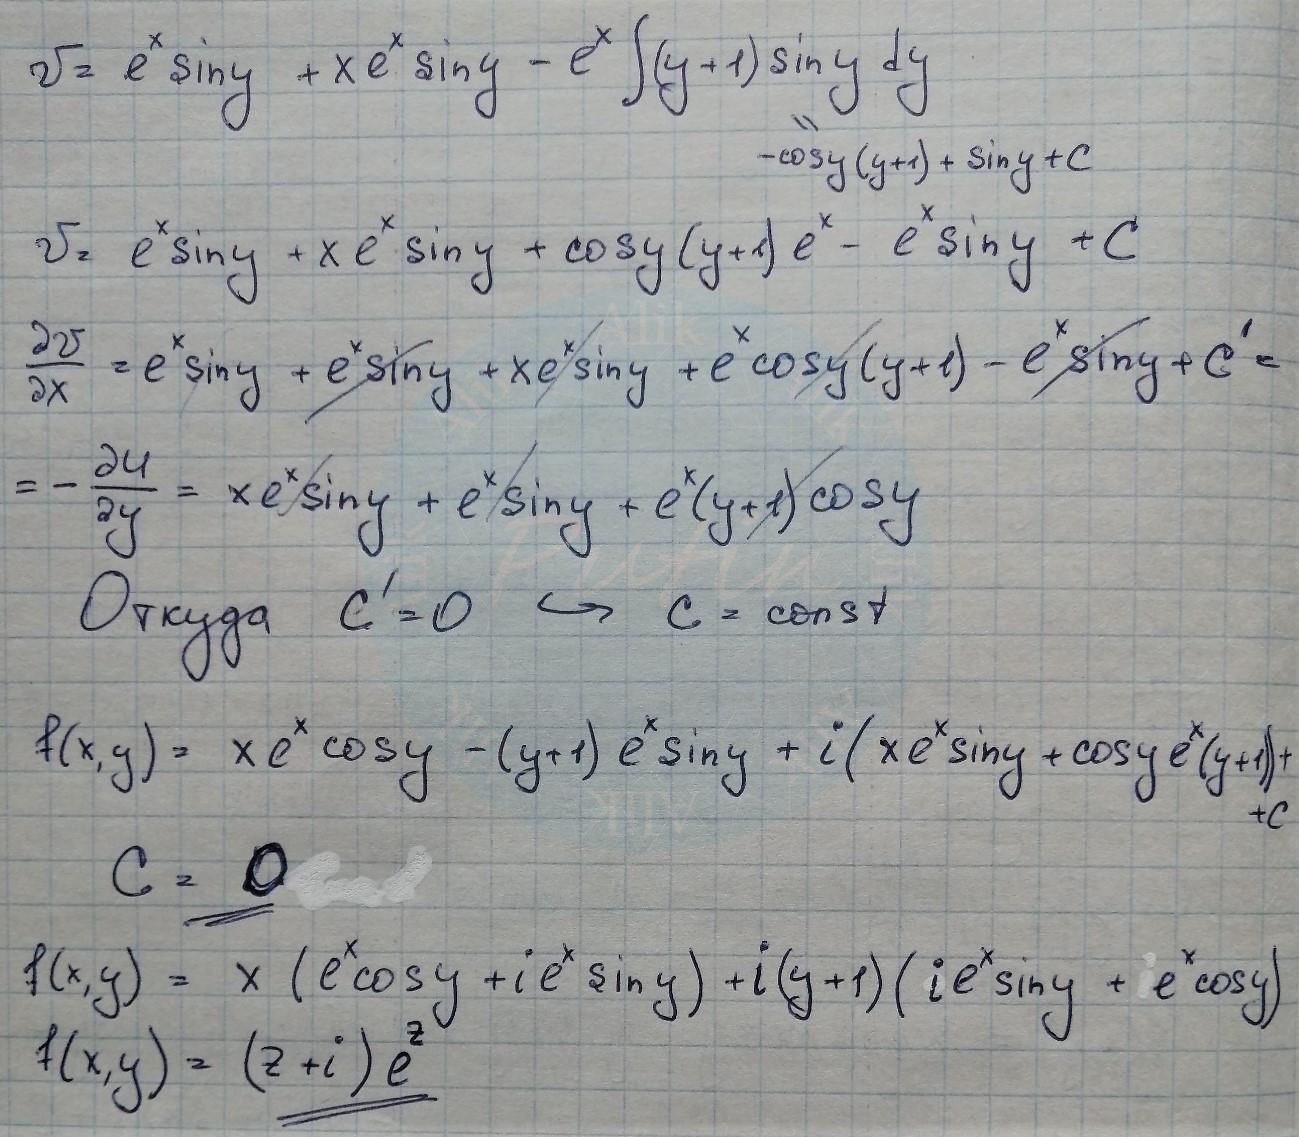 v = e^x sin y + x e^x sin y - e^x ∫(y+1) sin y dy
" -cos y (y+1) + sin y + C
v = e^x sin y + x e^x sin y + cos y (y+1) e^x - e^x sin y + C
∂v/∂x = e^x sin y + e^x sin y + x e^x sin y + e^x cos y (y+1) - e^x sin y + C' =
= - ∂u/∂y = x e^x sin y + e^x sin y + e^x (y+1) cos y
Откуда C' = 0 ↪ C = const
f(x,y) = x e^x cos y - (y+1) e^x sin y + i(x e^x sin y + cos y e^x (y+1)) +
+C
C = 0
f(x,y) = x (e^x cos y + i e^x sin y) + i(y+1)(i e^x sin y + e^x cos y)
f(x,y) = (z+i) e^z